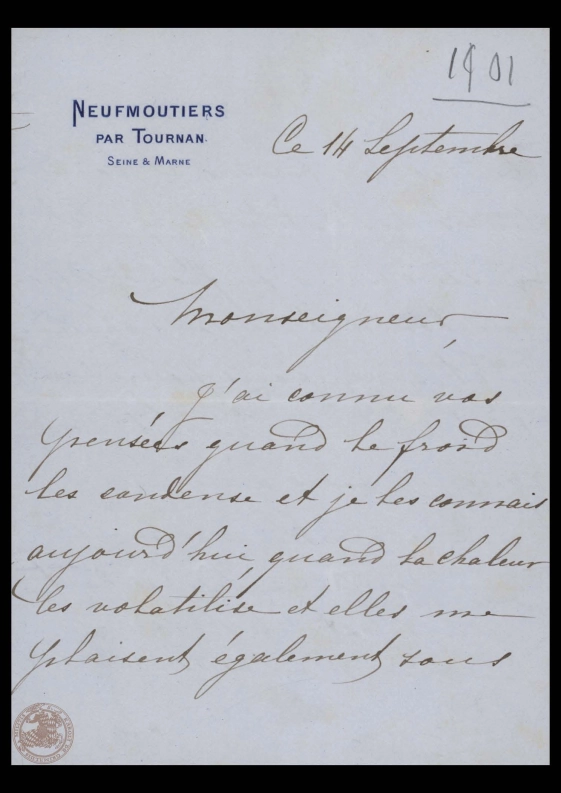 1901
NEUFMOUTIERS
PAR TOURNAN.
SEINE & MARNE
Ce 14 Septembre
Monseigneur,
J'ai connu vos
pensées quand le froid
les condense et je les connais
aujourd'hui, quand la chaleur
les volatilise et elles me
plaisent également sous